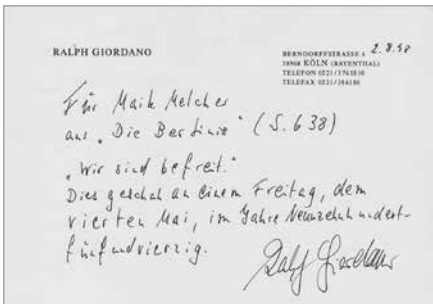 RALPH GIORDANO
BERNDORFFSTRASSE 4
50968 KÖLN (BAYENTHAL)
TELEFON 0221/3761810
TELEFAX 0221/
2.8.98
Für Maik Melcher
aus „Die Bertinis" (S. 638)
„Wir sind befreit."
Dies geschah an einem Freitag, dem
vierten Mai, im Jahre Neunzehnhundert-
fünfundvierzig.
Ralph Giordano